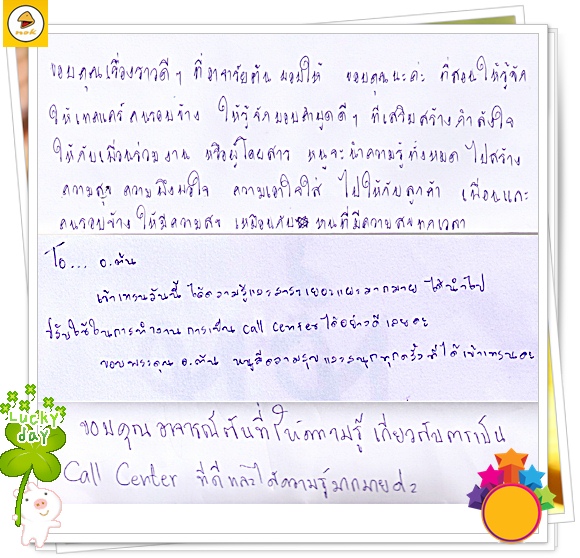 nok
ขอบคุณเรื่องราวดีๆ ที่อาจารย์ต้น มอบให้ ขอบคุณนะค่ะ ที่สอนให้รู้จัก
ให้เทคแคร์คนรอบข้าง ให้รู้จักมอบคำพูดดีๆ ที่เสริมสร้างกำลังใจ
ให้กับเพื่อนร่วมงาน หรือผู้โดยสาร หนูจะนำความรู้ทั้งหมด ไปสร้าง
ความสุข ความพึงพอใจ ความเอาใจใส่ ไปให้กับลูกค้า เพื่อนและ
คนรอบข้าง ให้มีความสุข เหมือนกับ หนูที่มีความสุขทุกเวลา
โอ... อ.ต้น
เข้าเทรนวันนี้ ได้ความรู้และสาระเยอะแยะมากมาย ได้นำไป
ปรับใช้ในการทำงาน การเป็น Call Center ได้อย่างดีเลยค่ะ
ขอบพระคุณ อ.ต้น หนูมีความสุขและสนุกทุกครั้งที่ได้เข้าเทรนค่ะ
ขอบคุณ อาจารย์ต้นที่ให้ความรู้ เกี่ยวกับการเป็น
Call Center ที่ดี และได้ความรู้มากมายค่ะ
Lucky
day